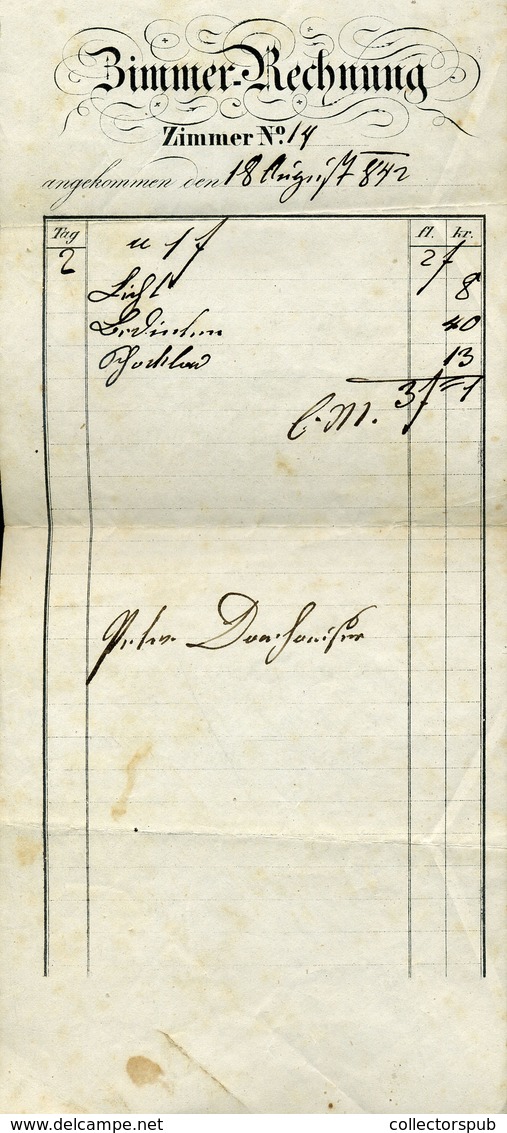 Zimmer-Rechnung
Zimmer No. 14
angekommen den 18 August 842
Tag fl. kr.
2 a 1 f 2 f
Licht 8
Bedienten 40
13
C. M. 3 f 1
Peter
delcampe.net collectorspub